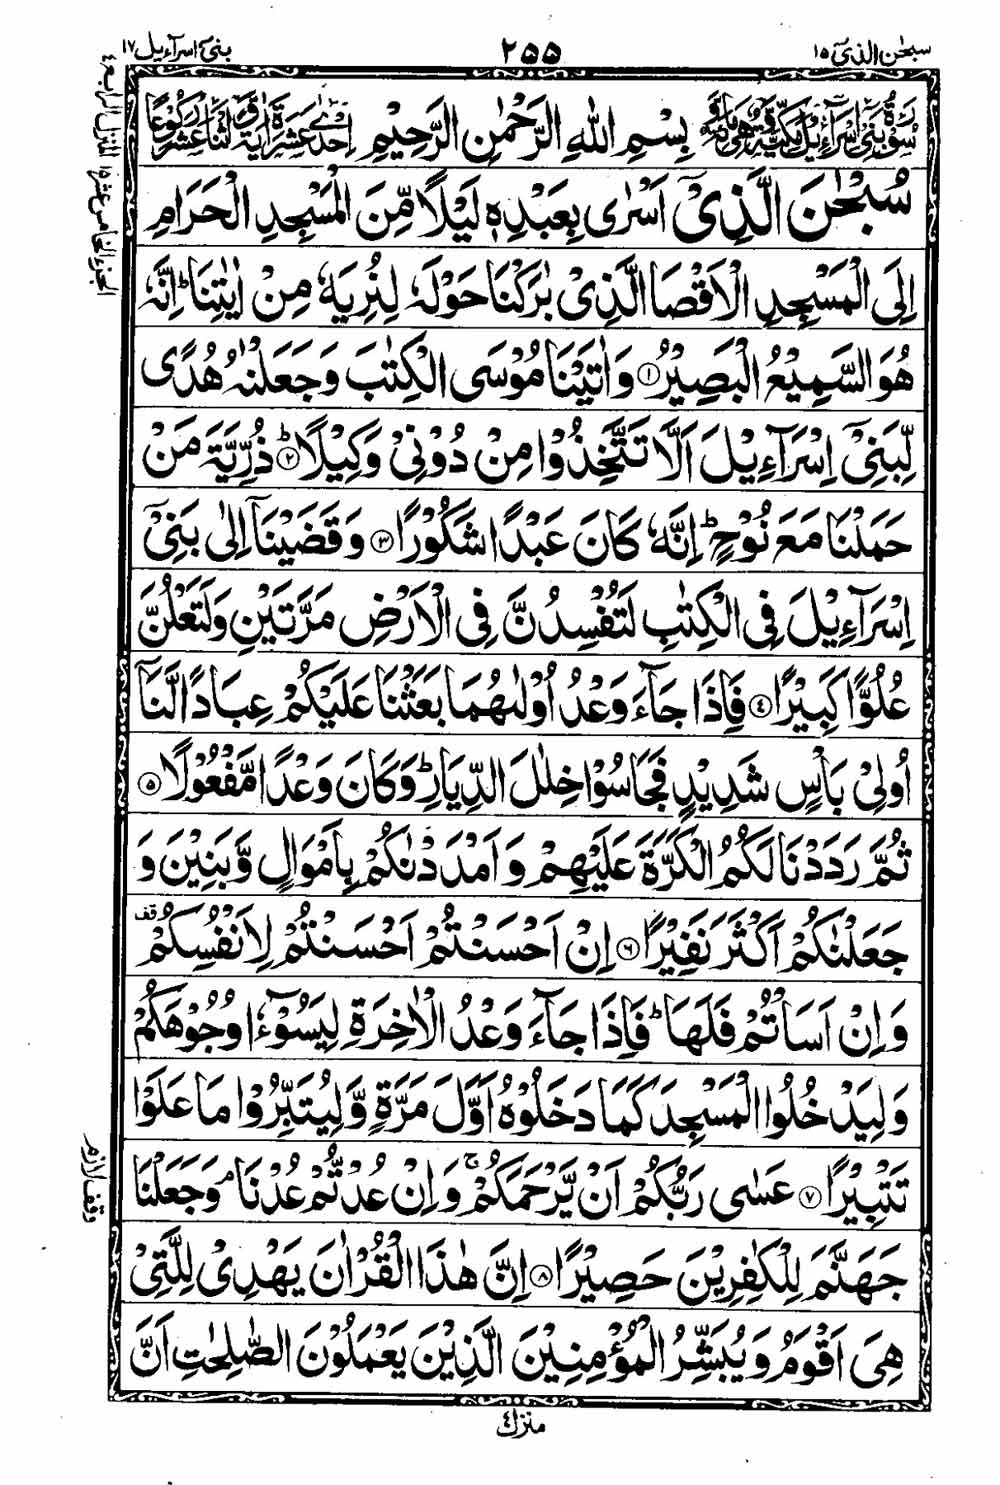 سبحٰن الذیٓ ١٥
٢٥٥
بنیٓ اسرآءیل ١٧
سُوْرَةُ بَنِیْٓ اِسْرَآءِیْلَ مَكِّیَّةٌ وَّهِیَ مِائَةٌ وَّ
بِسْمِ اللّٰهِ الرَّحْمٰنِ الرَّحِیْمِ
اِحْدٰی عَشْرَةَ اٰیَةً وَّاثْنَا عَشَرَ رُكُوْعًا
سُبْحٰنَ الَّذِیْٓ اَسْرٰی بِعَبْدِهٖ لَیْلًا مِّنَ الْمَسْجِدِ الْحَرَامِ
اِلَی الْمَسْجِدِ الْاَقْصَا الَّذِیْ بٰرَكْنَا حَوْلَهٗ لِنُرِیَهٗ مِنْ اٰیٰتِنَا ؕ اِنَّهٗ
هُوَ السَّمِیْعُ الْبَصِیْرُ ﴿١﴾ وَ اٰتَیْنَا مُوْسَی الْكِتٰبَ وَ جَعَلْنٰهُ هُدًی
لِّبَنِیْٓ اِسْرَآءِیْلَ اَلَّا تَتَّخِذُوْا مِنْ دُوْنِیْ وَكِیْلًا ﴿٢﴾ؕ ذُرِّیَّةَ مَنْ
حَمَلْنَا مَعَ نُوْحٍ ؕ اِنَّهٗ كَانَ عَبْدًا شَكُوْرًا ﴿٣﴾ وَ قَضَیْنَاۤ اِلٰی بَنِیْٓ
اِسْرَآءِیْلَ فِی الْكِتٰبِ لَتُفْسِدُنَّ فِی الْاَرْضِ مَرَّتَیْنِ وَلَتَعْلُنَّ
عُلُوًّا كَبِیْرًا ﴿٤﴾ فَاِذَا جَآءَ وَعْدُ اُوْلٰىهُمَا بَعَثْنَا عَلَیْكُمْ عِبَادًا لَّنَاۤ
اُولِیْ بَاْسٍ شَدِیْدٍ فَجَاسُوْا خِلٰلَ الدِّیَارِ ؕ وَ كَانَ وَعْدًا مَّفْعُوْلًا ﴿٥﴾
ثُمَّ رَدَدْنَا لَكُمُ الْكَرَّةَ عَلَیْهِمْ وَ اَمْدَدْنٰكُمْ بِاَمْوَالٍ وَّ بَنِیْنَ وَ
جَعَلْنٰكُمْ اَكْثَرَ نَفِیْرًا ﴿٦﴾ اِنْ اَحْسَنْتُمْ اَحْسَنْتُمْ لِاَنْفُسِكُمْ قف
وَ اِنْ اَسَاْتُمْ فَلَهَا ؕ فَاِذَا جَآءَ وَعْدُ الْاٰخِرَةِ لِیَسُوْٓءٗا وُجُوْهَكُمْ
وَ لِیَدْخُلُوا الْمَسْجِدَ كَمَا دَخَلُوْهُ اَوَّلَ مَرَّةٍ وَّ لِیُتَبِّرُوْا مَا عَلَوْا
تَتْبِیْرًا ﴿٧﴾ عَسٰی رَبُّكُمْ اَنْ یَّرْحَمَكُمْ ۚ وَ اِنْ عُدْتُّمْ عُدْنَا ۘ وَ جَعَلْنَا
جَهَنَّمَ لِلْكٰفِرِیْنَ حَصِیْرًا ﴿٨﴾ اِنَّ هٰذَا الْقُرْاٰنَ یَهْدِیْ لِلَّتِیْ
هِیَ اَقْوَمُ وَ یُبَشِّرُ الْمُؤْمِنِیْنَ الَّذِیْنَ یَعْمَلُوْنَ الصّٰلِحٰتِ اَنَّ
المنزل الرابع ٤
الجزء الخامس عشر ١٥
وقف لازم
منزل ٤